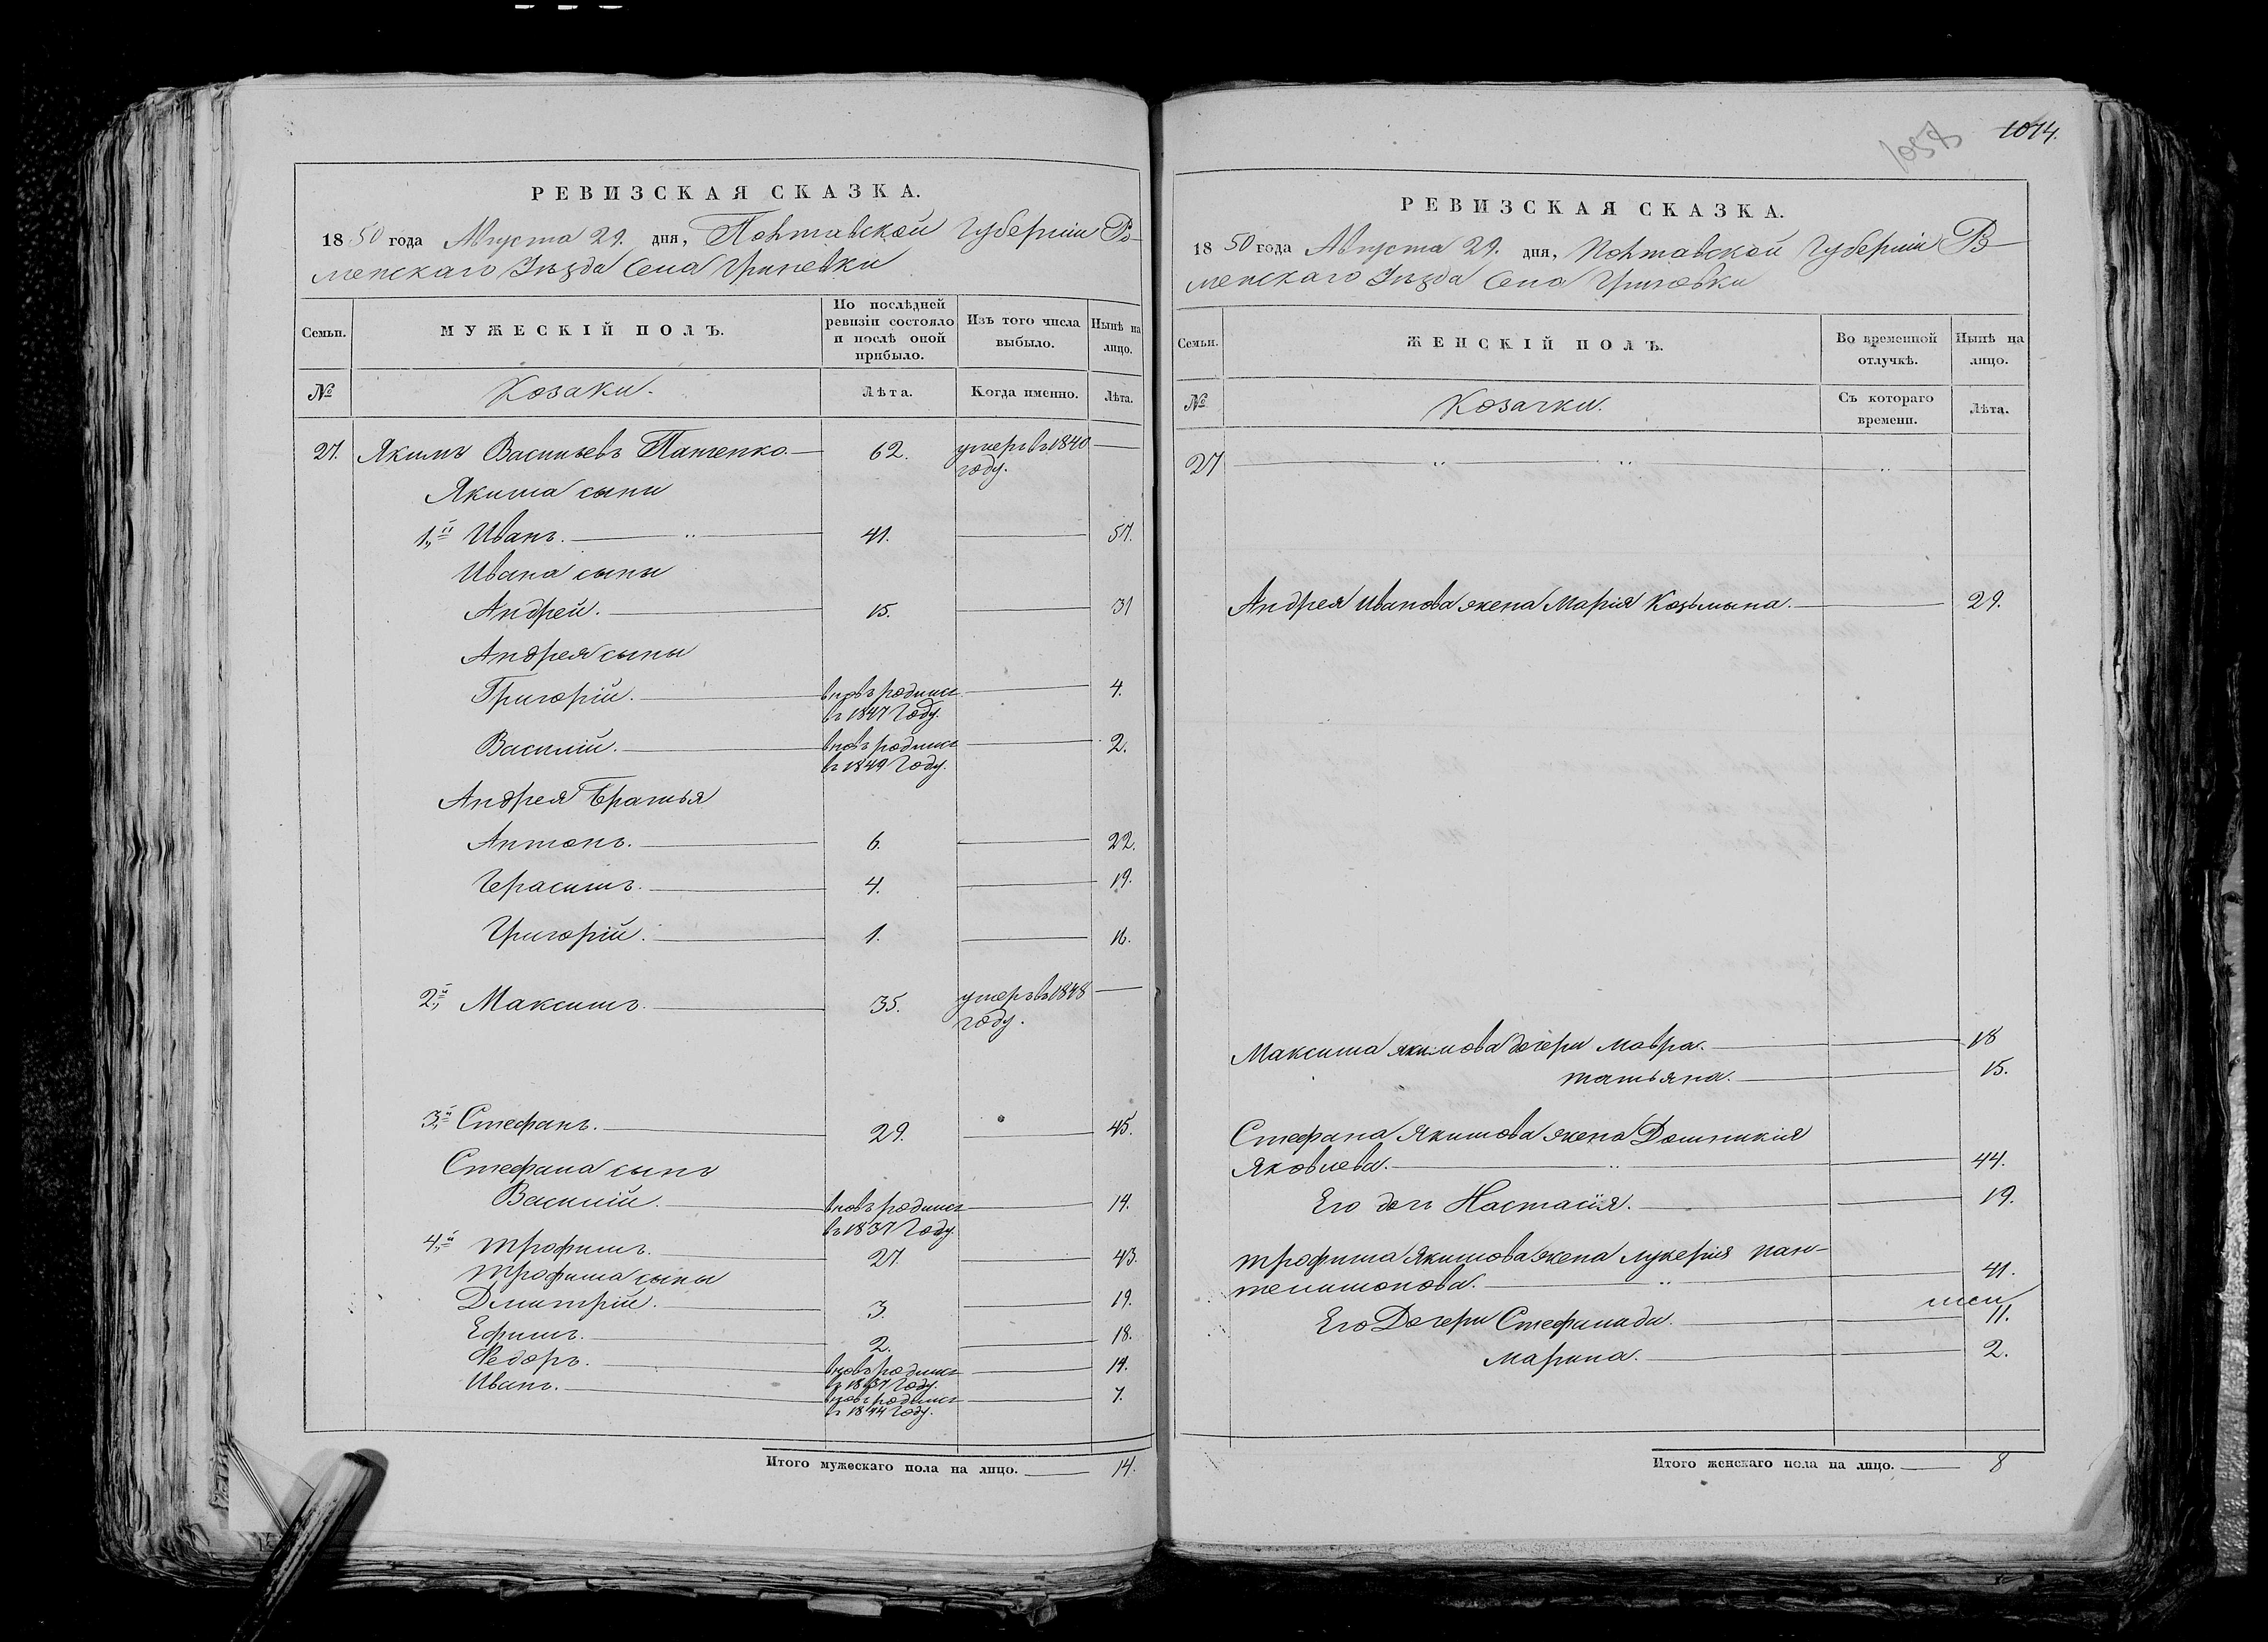 РЕВИЗСКАЯ СКАЗКА.
1850 года Августа 29. дня, Полтавской Губерніи Ро-
менскаго Уѣзда Села
Семьи.
МУЖЕСКІЙ ПОЛЪ.
По послѣдней ревизіи состояло и послѣ оной прибыло.
Изъ того числа выбыло.
Нынѣ на лицо.
№
Козаки.
Лѣта.
Когда именно.
Лѣта.
27. Якимъ Васильевъ Панченко. 62. умеръ въ 1840 году.
Якима сыны
1й Иванъ. 41. 57.
Ивана сыны
Андрей. 15. 31
Андрея сыны
Григорій. вновь родился въ 1847 Году. 4.
Василій. вновь родился въ 1849 Году. 2.
Андрея Братья
Антонъ. 6. 22.
Герасимъ. 4. 19.
Григорій. 1. 16.
2й Максимъ. 35. умеръ въ 1848 году.
3й Стефанъ. 29. 45.
Стефана сынъ
Василій. вновь родился въ 1837 Году. 14.
4й Трофимъ. 27. 43.
Трофима сыны
Дмитрій. 3. 19.
Ефимъ. 2. 18.
Федоръ. вновь родился въ 1837 Году. 14.
Иванъ. вновь родился въ 1844 Году. 7.
Итого мужескаго пола на лицо. 14.
1058
1074.
РЕВИЗСКАЯ СКАЗКА.
1850 года Августа 29. дня, Полтавской Губерніи Ро-
менскаго Уѣзда Села
Семьи.
ЖЕНСКІЙ ПОЛЪ.
Во временной отлучкѣ.
Нынѣ на лицо.
№
Козачки.
Съ котораго времени.
Лѣта.
27
Андрея Иванова жена Марія Козьмина. 29.
Максима Якимова дочери Мавра. 18
Татьяна. 15.
Стефана Якимова жена Домникія
Яковлева. 44.
Его дочь Настасія. 19.
Трофима Якимова жена Лукерія Пан-
телимонова. 41.
Его Дочери Стефанида. 11.
Марина. 2.
Итого женскаго пола на лицо. 8